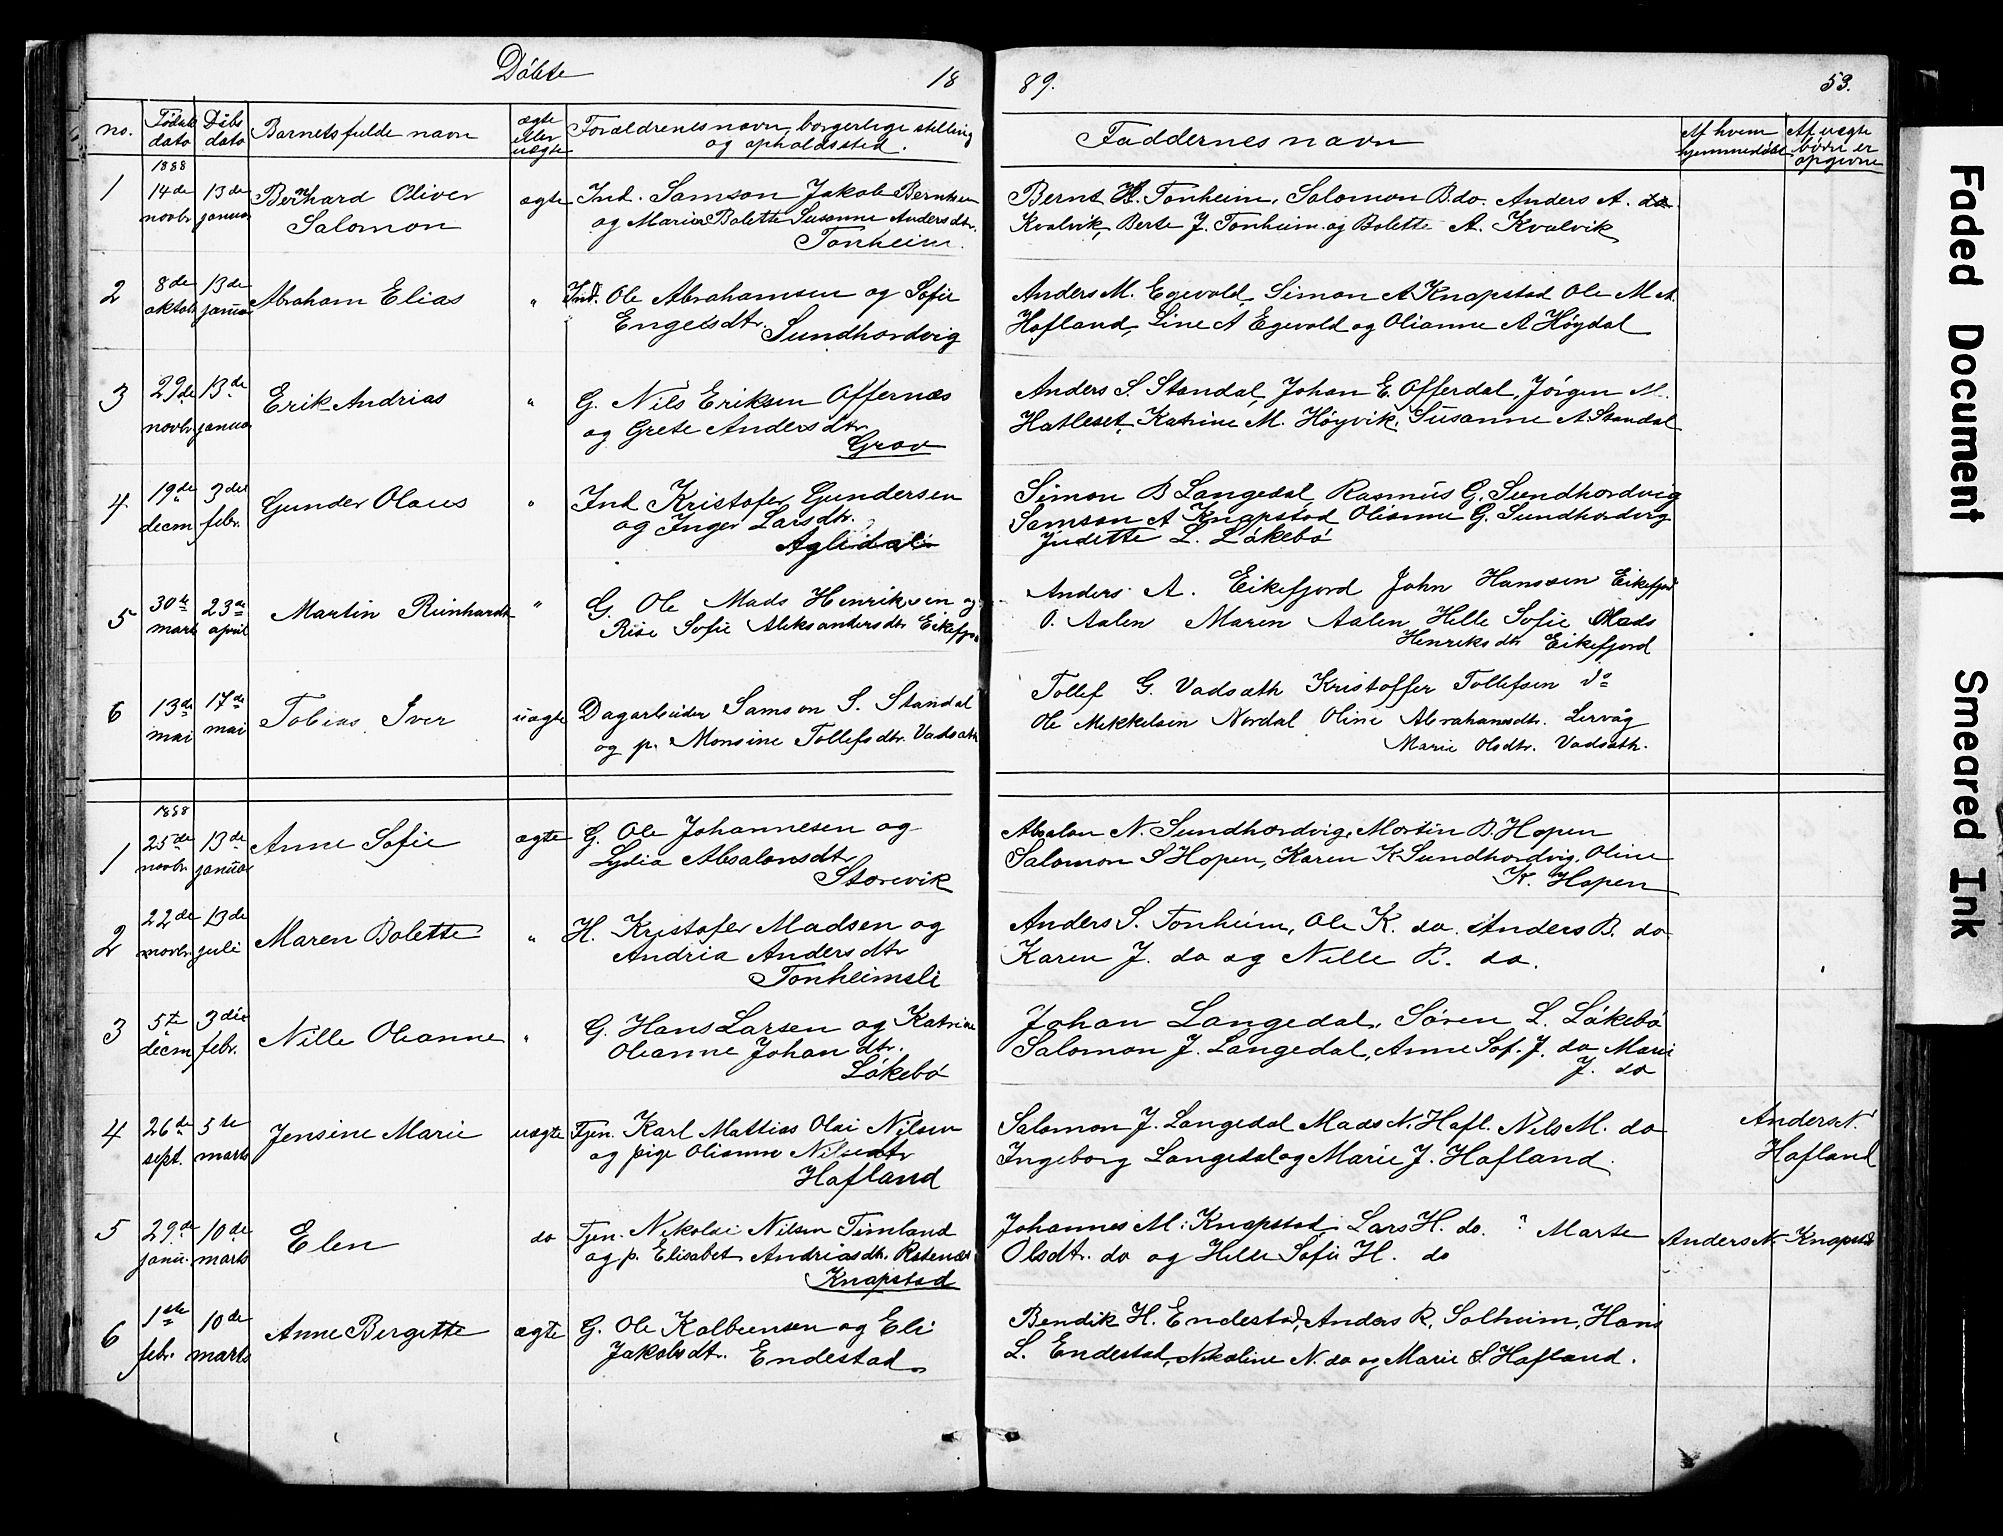 Döbte 18 89. 53.
no. Fødsels dato Døbs dato Barnets fulde navn ægte eller uægte Forældrenes navn, borgerlige stilling og opholdssted. Faddernes navn Af hvem hjemmedøbt Af uægte børn er opgivne
1888
1 14de novbr. 13de januar Bernhard Oliver Salomon ægte Ind. Samson Jakob Berntsen
og Maria Bolette Susanne Andersdtr.
Tonheim.
Bernt H. Tonheim, Salomon B. do. Anders A.
Kvalvik, Berte J. Tonheim og Bolette A. Kvalvik
2 8de oktob. 13de januar Abraham Elias " Ind. Ole Abrahamsen og Sofie
Engelsdtr. Sundhordvig
Anders M. Egevold, Simon A Knapstad Ole M A.
Hafland, Line A Egevold og Olianne A Høydal
3 29de novbr. 13de januar Erik Andrias " G. Nils Eriksen Offernæs
og Grete Andersdtr.
Grov
Anders S. Standal, Johan E. Offerdal, Jörgen M.
Hatleset, Katrine M. Høyvik, Susanne A. Standal
4 19de decm 3die febr. Gunder Olaus " Ind Kristofer Gundersen
og Inger Larsdtr.
Simon B Langedal, Rasmus G. Sundhordvig
Samson A Knapstad, Olianne G. Sundhordvig
Judette L. Lökebö
5 30te marts 23de april Martin Reinhardt " G. Ole Mads Henriksen og
Rise Sofie Aleksandersdtr Eikefjo
Anders A. Eikefjord John Hanssen Eikefjord
O. Aalen Maren Aalen, Helle Sofie Mads
Henriksdtr Eikefjord
6 13de mai 17de mai Tobias Iver uægte Dagarbeider Samson S. Standal
og p. Monsine Tollefsdtr. Vadsæth
Tollef G. Vadsæth Kristoffer Tollefsen do
Ole Mekkelsen Nordal Oline Abrahamsdtr. Lervåg
Marie Olsdtr. Vadsæth.
1888
1 25de novbr. 13de januar Anne Sofie ægte G. Ole Johannesen og
Lydia Absalonsdtr.
Storevik
Absalon N. Sundhordvig, Mortin B. Hopen
Salomon S Hopen, Karen K Sundhordvig, Oline
K. Hopen
2 22de novbr. 13de juli Maren Bolette " H. Kristofer Madsen og
Andria Andersdtr
Tonheimsli
Anders S. Tonheim, Ole K. do. Anders B. do
Karen J. do og Nille R. do.
3 5te decm 3die febr. Nille Oleanne " G. Hans Larsen og Katrine
Oleanne Johandtr.
Lökebö
Johan Langedal, Sören L. Lökebö
Salomon J. Langedal, Anne Sof. J. do Marie
J. do
4 26de sept. 5te marts Jensine Marie uægte Tjen. Karl Mattias Olai Nilsen
og pige Olianne Nilsedtr
Hafland
Salomon J. Langedal Mads N. Hafl. Nels M. do
Ingeborg Langedal og Marie J. Hafland.
Anders N.
Hafland
5 29de janu. 10de marts Elen do Tjen. Nikolai Nilsen Timland
og p. Elisabet Andriasdtr.
Knapstad
Johannes M. Knapstad Lars H. do. Marte
Olsdtr. do og Helle Sofie H. do
Anders N. Knapstad
6 1ste febr. 10de marts Anne Bergitte ægte G. Ole Kolbensen og Eli
Jakobsdtr. Endestad
Bendik H. Endestad, Anders R. Solheim, Hans
L. Endestad, Nikoline N. do og Marie S. Hafland.
Faded Document
Smeared Ink